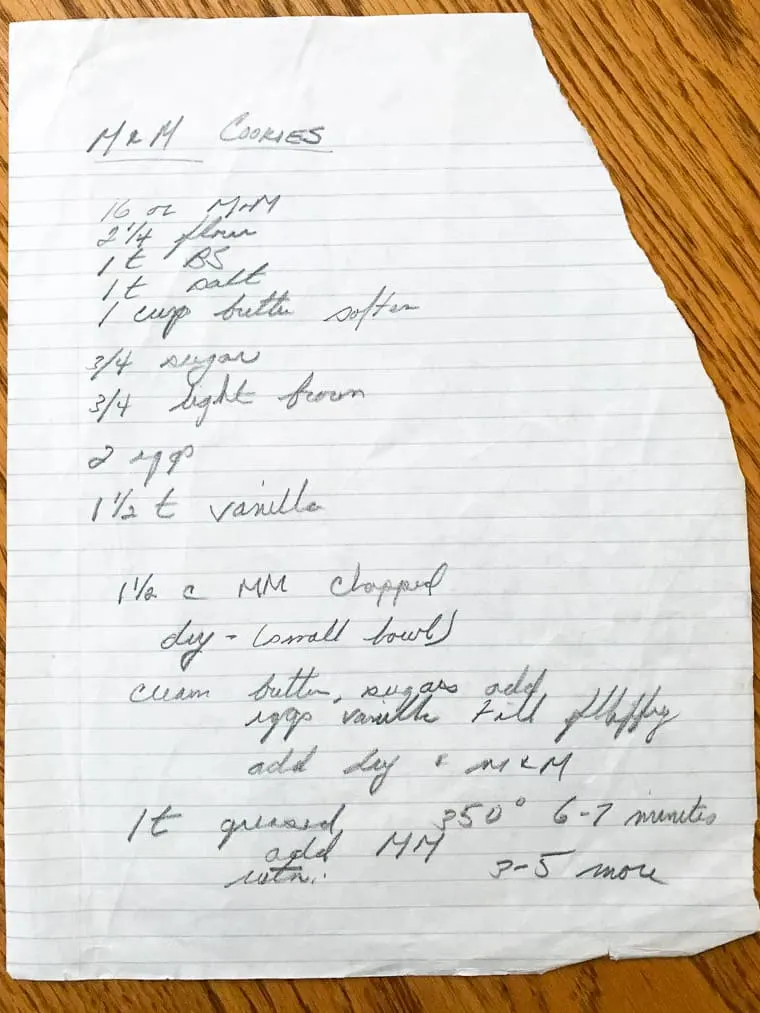 M & M COOKIES
16 oz M&M
2 1/4 flour
1 t BS
1 t salt
1 cup butter soften
3/4 sugar
3/4 light brown
2 eggs
1 1/2 t vanilla
1 1/2 c MM chopped
dry - (small bowl)
cream butter, sugars add
eggs vanilla till fluffy
add dry & M&M
1t greased 350° 6-7 minutes
add MM
retn. 3-5 more